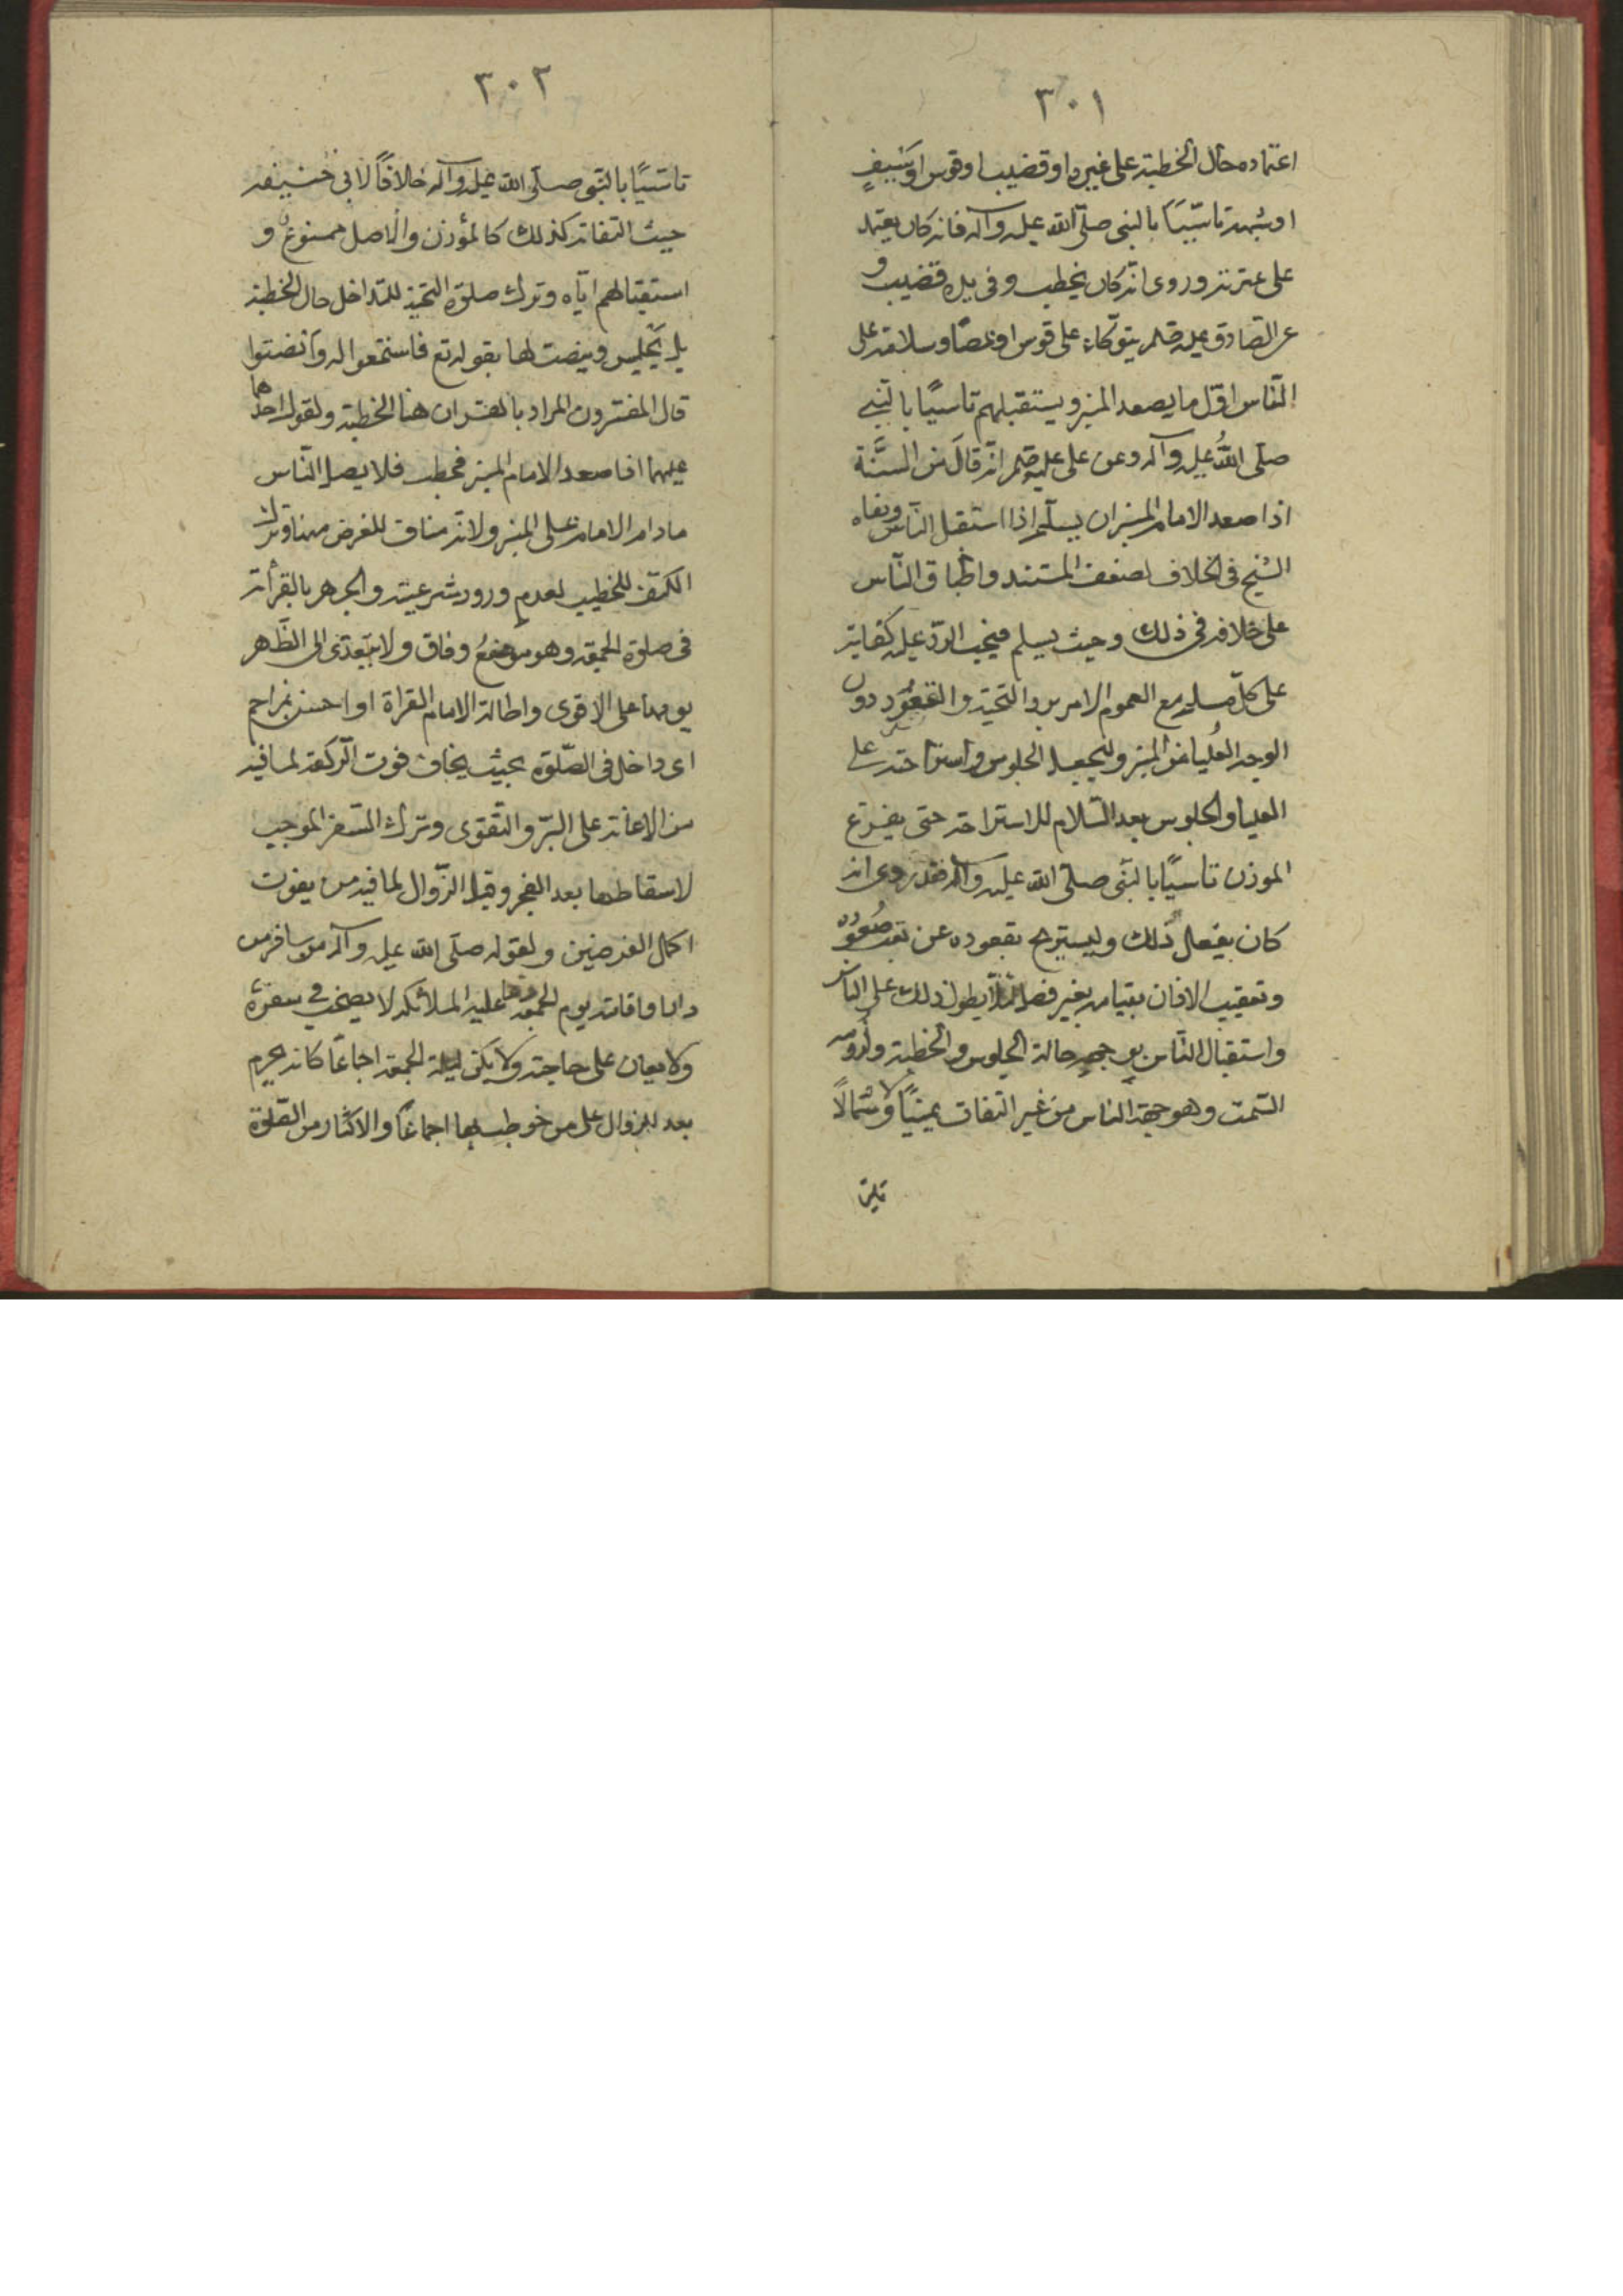 ٣٠١
اعتماده حال الخطبة على غيره او قضيب او قوس او سيف
او شبهه تاسّيًا بالنبى صلّى الله عليه وآله فانه كان يعتمد
على عنزته وروى انّه كان يخطب وفى يده قضيب و
عن الصّادق عليه السلم يتوكاء على قوس او عصًا وسلامه على
النّاس اوّل ما يصعد المنبر ويستقبلهم تاسيًا بالنّبى
صلّى اللهُ عليه وآله وعن على عليه السلم انّه قالَ من السُّنّة
اذا صعد الامام المنبر ان يسلّم اذا استقبل النّاس ونفاه
الشيخ فى الخلاف لضعف المستند واطباق النّاس
على خلافه فى ذلك وحيث يسلم فيجب الردّ عليه كفاية
على كلّ مسلم مع العموم الامر برد التحيّة والقُعُود دون
الوجه العُليا من المنبر وليجعل الجلوس واستراحته على
العليا والجلوس بعد السّلام للاستراحة حتى يفرغ
الموذن تاسيًا بالنبّى صلّى الله عليه وآله فقد روى انه
كان يفعل ذلك وليستريح بقعوده عن تعب صُعوده
وتعقيب الاذان بقيامه بغير فصل لئلّا يطول ذلك على الناس
واستقبال النّاس بوجهه حالة الجلوس والخطبة ولزومه
السّمت وهو جهة الناس من غير التفات يمينًا ولا شمالًا
٣٠٢
تاسّيًا بالنّبى صلّى الله عليه وآله خلافًا لابى حنيفه
حيث التفاته كذلك كالمؤذن والاصل ممنوع و
استقبالهم ايّاه وترك صلوة التحيّة للدّاخل حال الخطبة
بل يجلس وينصت لها بقوله تع فاستمعوا له وأنصتوا
قال المفسّرون المراد بالقران هنا الخطبة ولقول احدهما
عليهما اذا صعد الامام المنبر فخطب فلا يصل النّاس
ما دام الامام على المنبر ولانّه مناف للغرض منها وترك
الكتف للخطيب لعدم ورود شرعيته والجهر بالقرأة
فى صلوة الجمعة وهو موضعُ وفاق ولا يتعدّى الى الظّهر
يومها على الاقوى واطالة الامام القراة لو احسّ بمزاحم
اى داخل فى الصّلوة بحيث يخاف فوت الركعة لما فيه
من الاعانة على البرّ والتّقوى وترك السّفر الموجب
لاسقاطها بعد الفجر وقبل الزّوال لما فيه من يفوت
اكمل الفرضين ولقوله صلّى الله عليه وآله من سافر من
دار اقامته يوم الجمعة دعا عليه الملائكه لا يصحب فى سفره
ولا يعان على حاجة ولا يكره ليلة الجمعة اجماعًا كانه يحرم
بعد الزوال على من خوطب بها اجماعًا والاكثار من الصّلوة